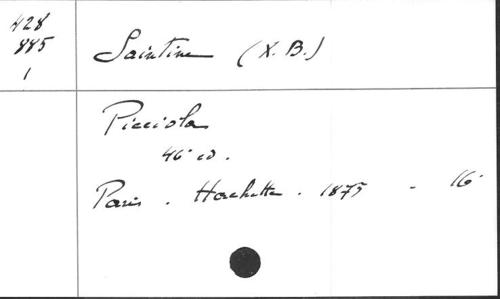 428
885
1
Saintine (X. B.)
Picciola
46 éd.
Paris . Hachette . 1875 - 16